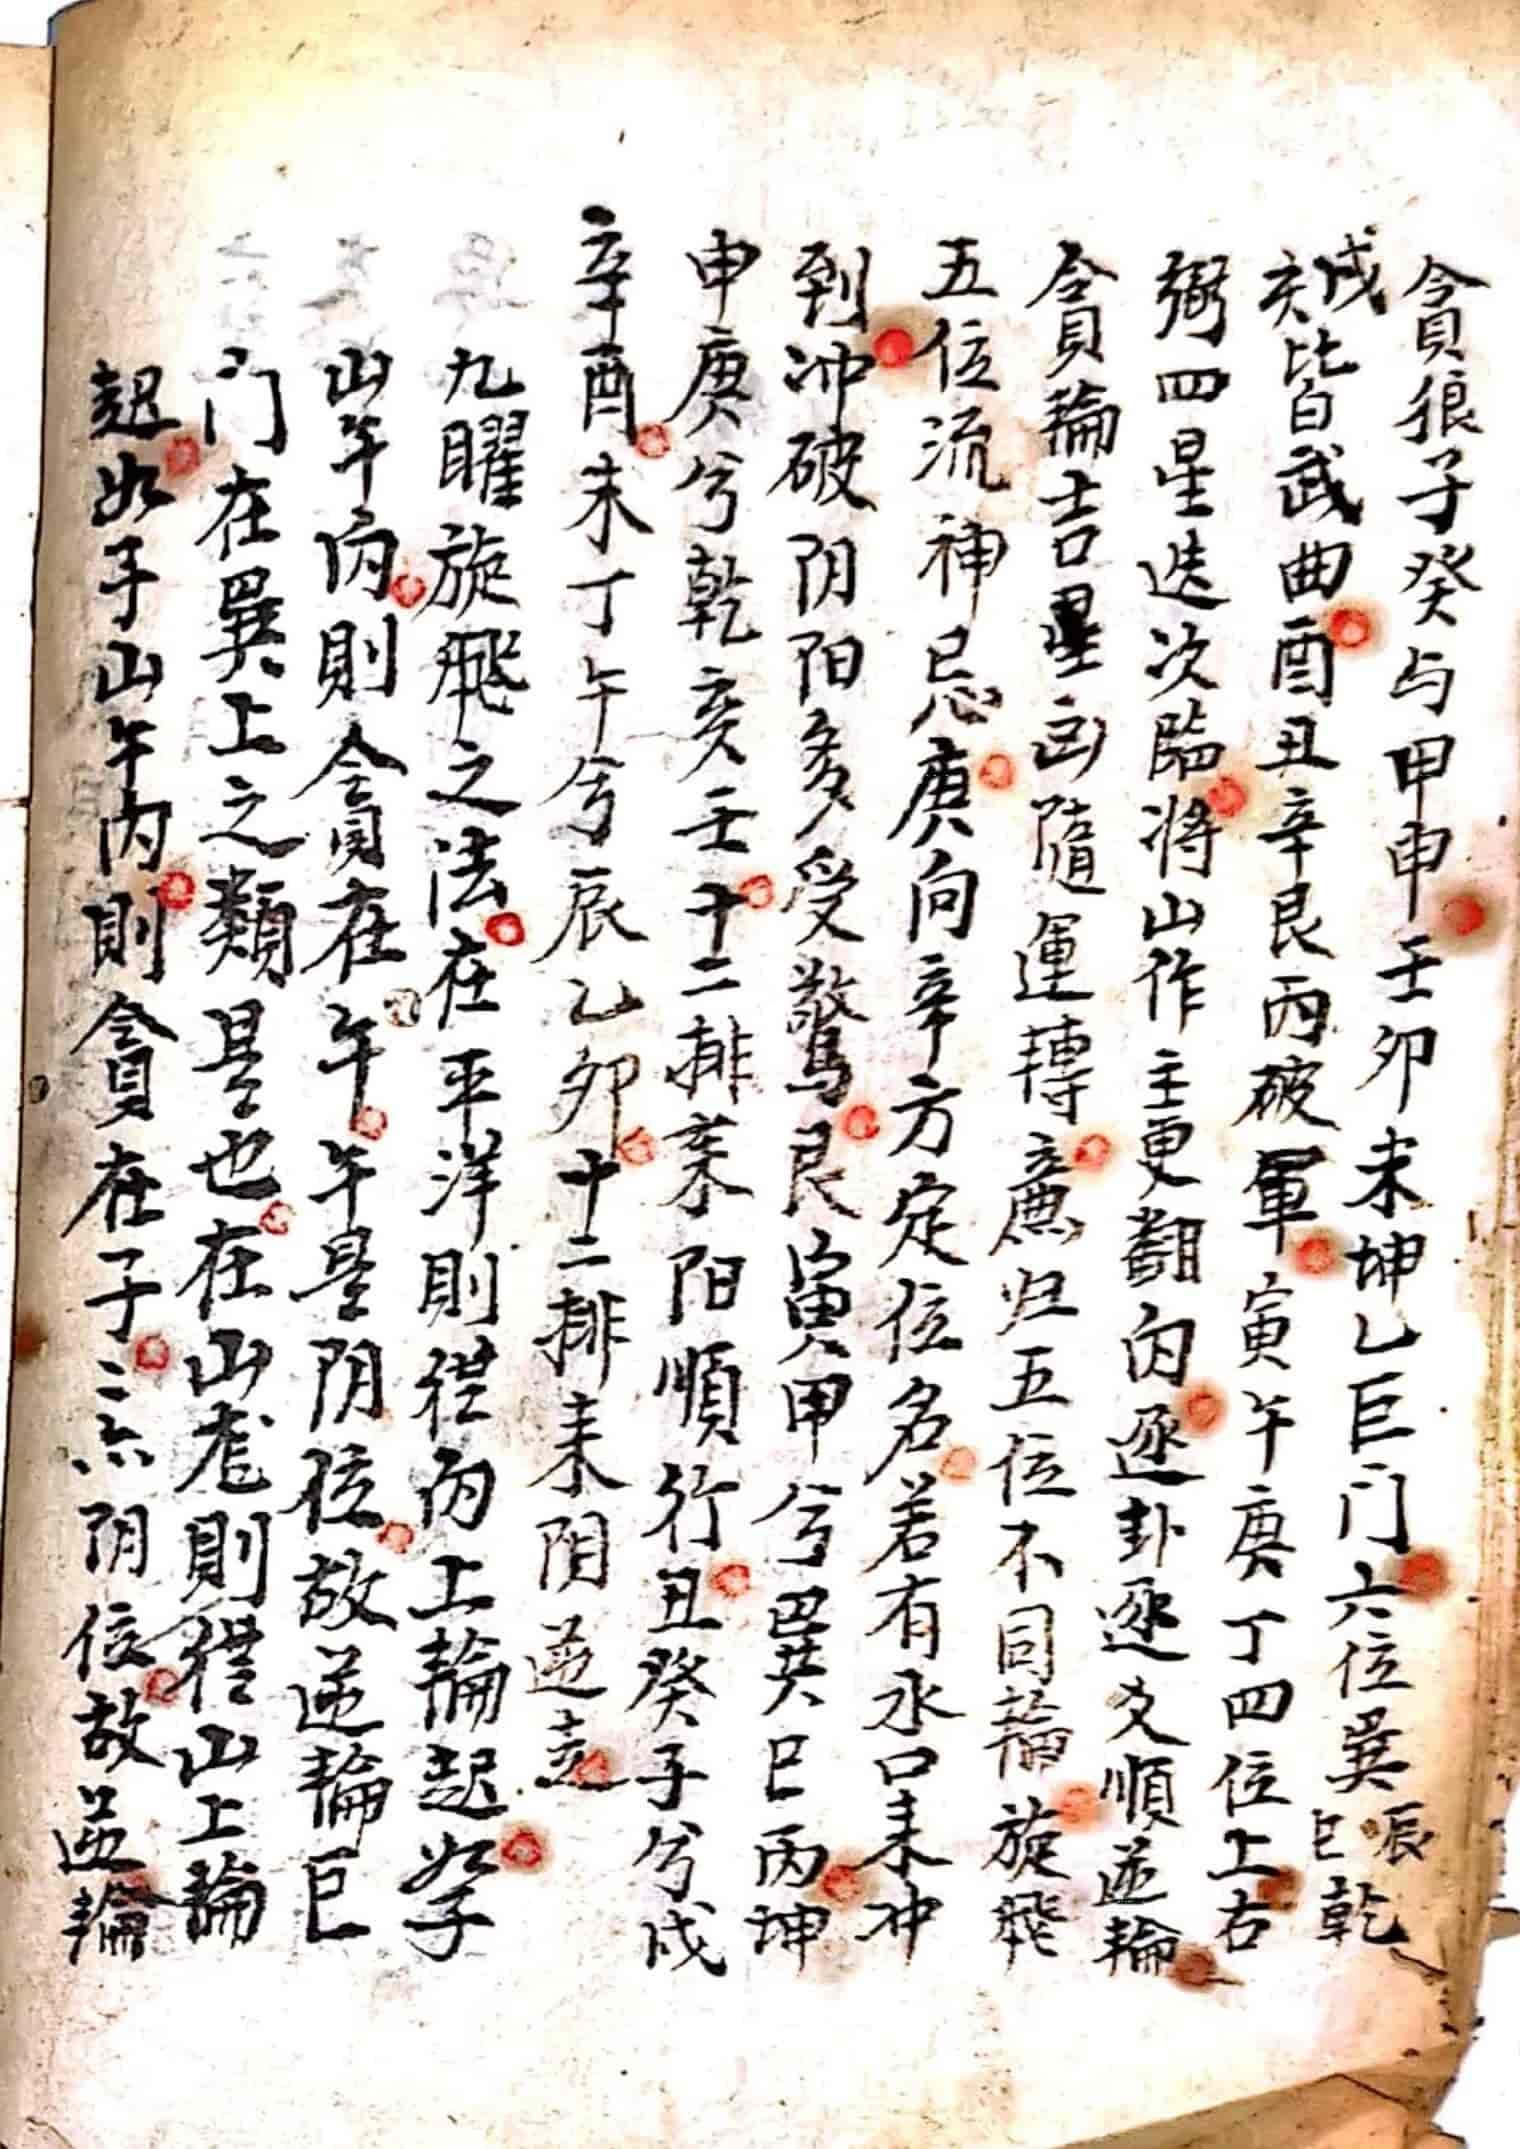 貪狼子癸与甲申壬卯未坤乙巨门六位巽辰巳乾
戌亥皆武曲酉丑辛艮丙破軍寅午庚丁四位上右
弼四星迭次臨将山作主更翻向逐卦逐爻順逆輪
貪輪吉星凶隨運轉廉归五位不同輪旋飛
五位流神忌庚向辛方定位名若有水口来冲
到冲破阴阳多受驚艮寅甲兮巽巳丙坤
申庚兮乾亥壬十二排来阳順行丑癸子兮戌
辛酉未丁午兮辰乙卯十二排来阴逆走
九曜旋飛之法在平洋則従向上輪起如子
山午向則貪在午午是阴位故逆輪巨
门在巽上之類是也在山龙則従山上輪
起如子山午向則貪在子子亦阴位故逆輪